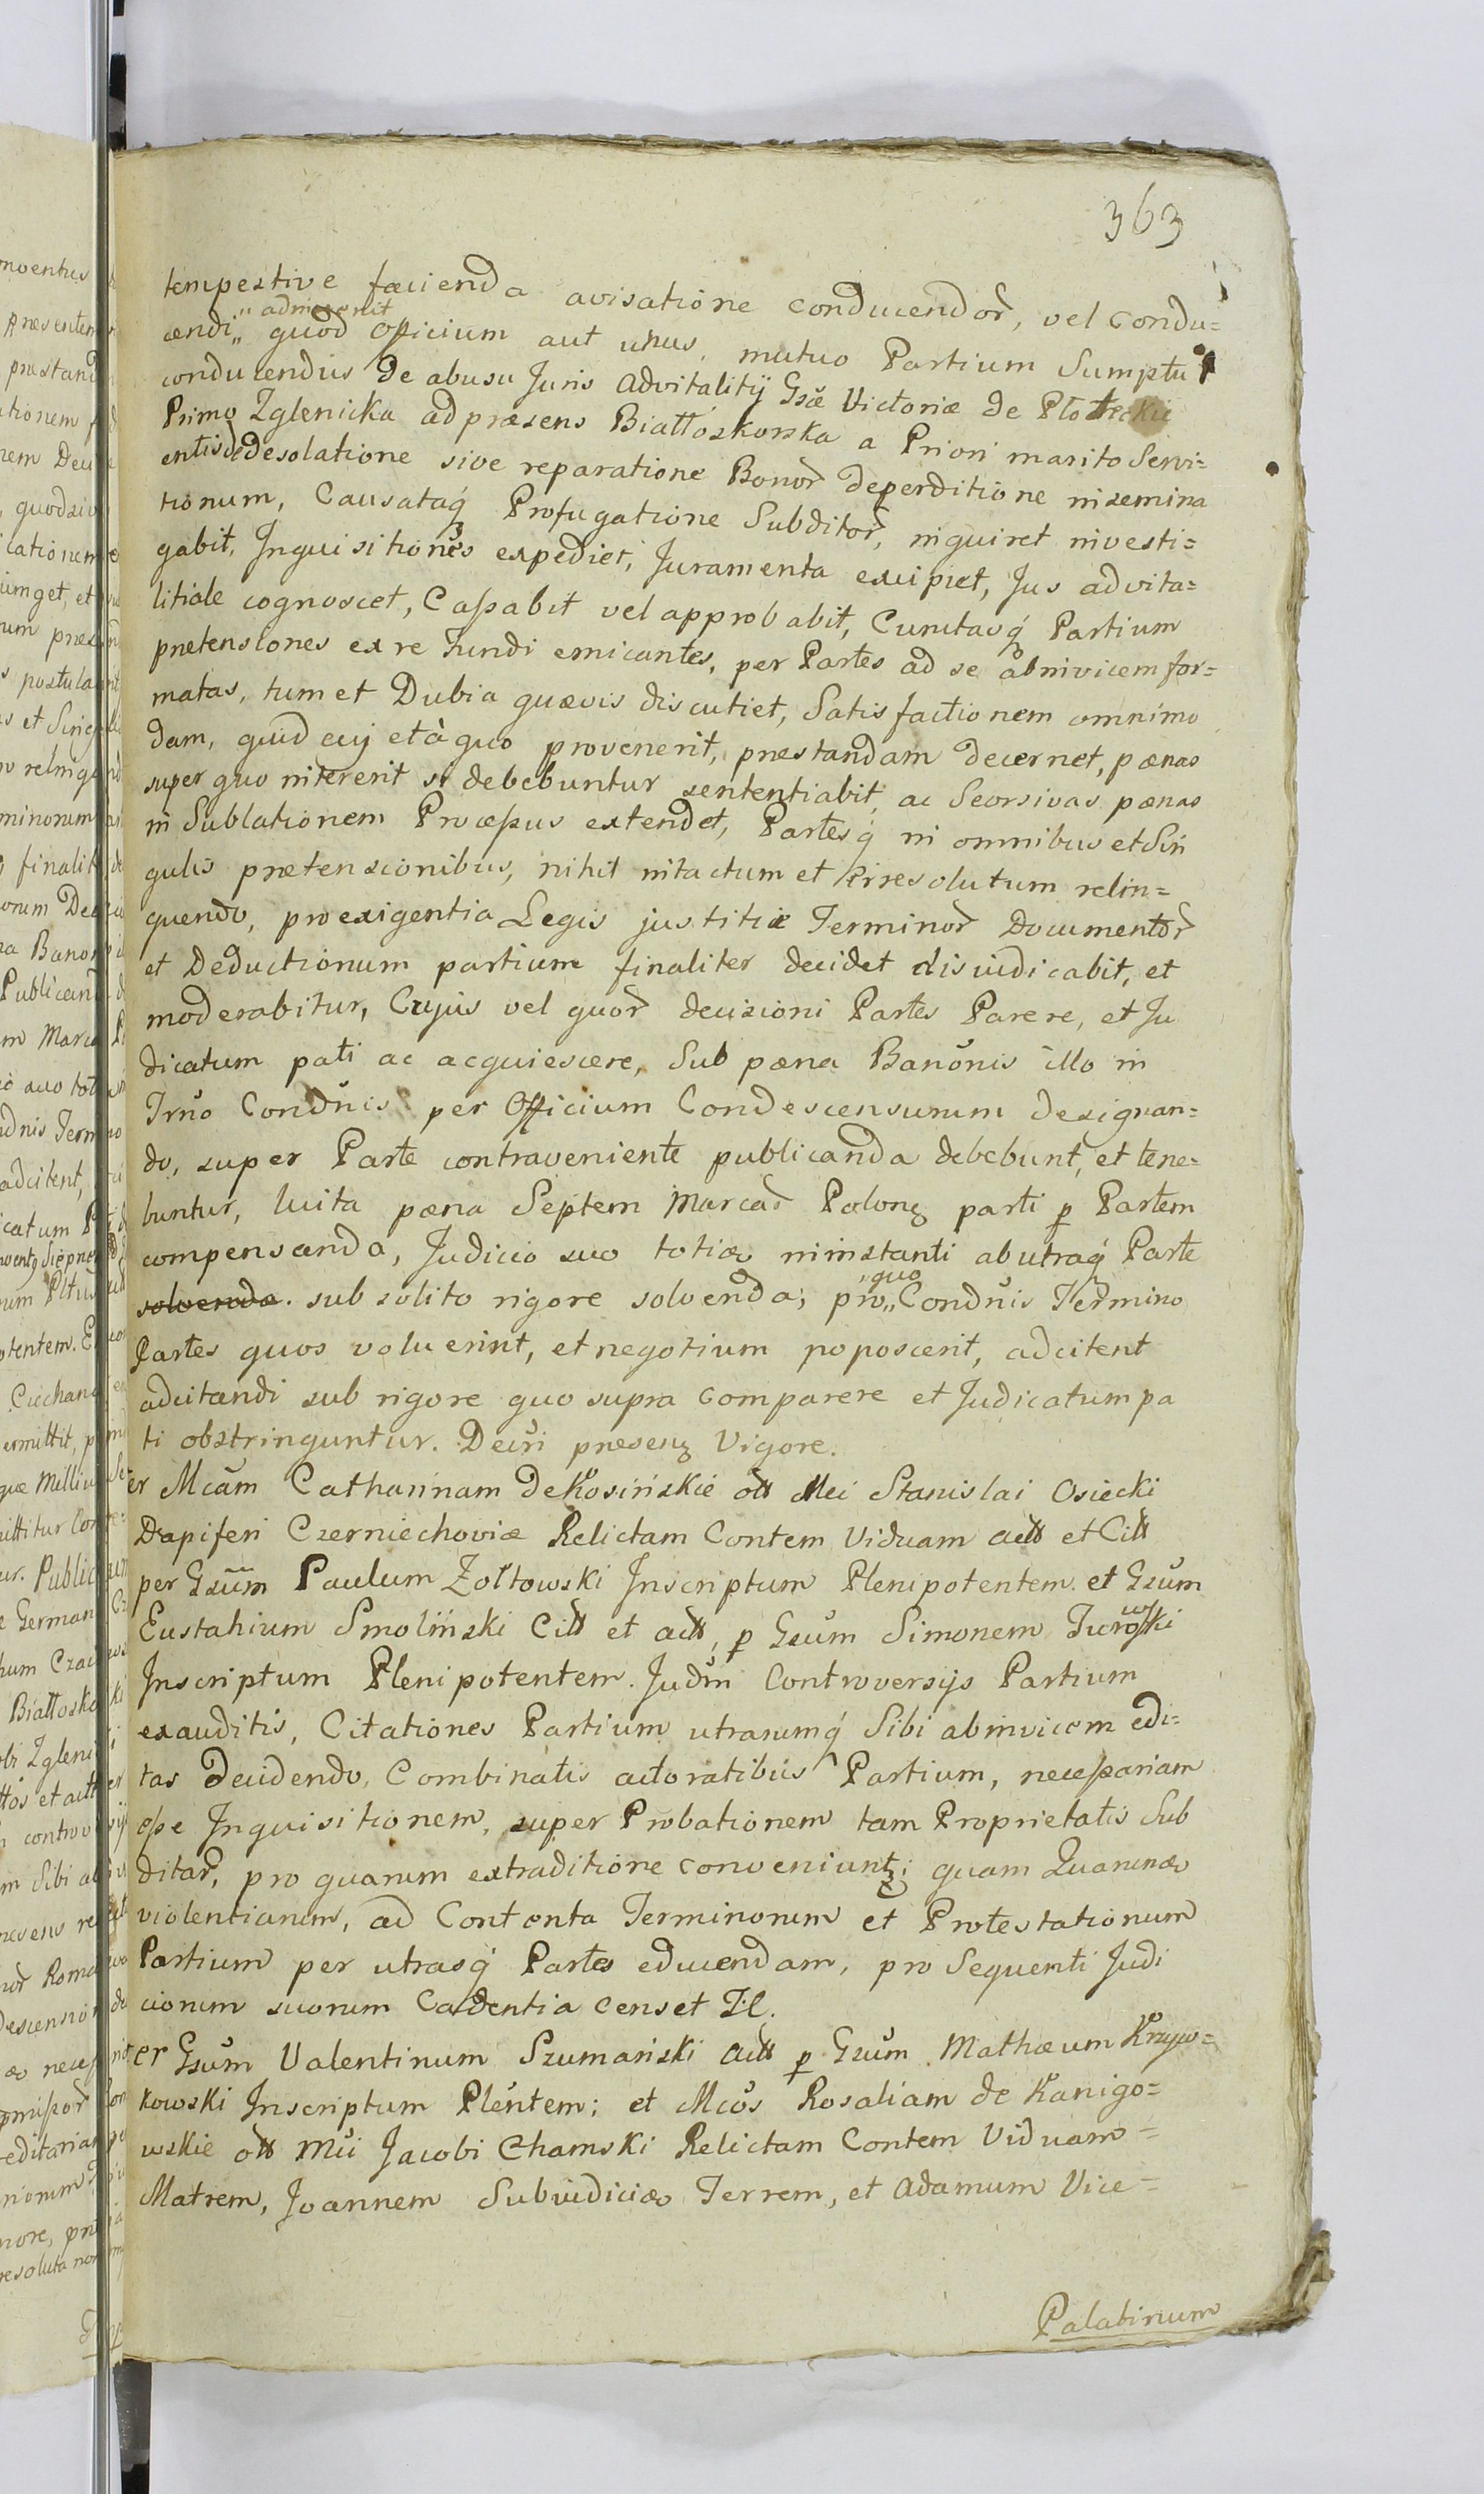 363
tempestive facienda avisatione conducendor, vel condu=
cendi „ quod Officium aut unus, mutuo Partium Sumptu
conducendus De abusu Juris Advitalitÿ Gsæ Victoriæ de Płotnickie
Primo Zglenicka ad præsens Białłoskorska a Priori marito Servi=
entis, desolatione sive reparatione Bonor deperditione insemina
tionum, Causataq Profugatione Subditor, inquiret investi=
gabit, Inquisitiones expediet, Juramenta excipiet, Jus advita=
litiale cognoscet, Caſsabit vel approbabit, Cunctasq́ Partium
prætensiones ex re Fundi emicantes, per Partes ad se abinvicem for=
matas, tum et Dubia quævis discutiet, Satisfactionem omnimo
dam, quid cuj et à quo provenerit, præstandam decernet, pænas
super quo intererit si debebuntur sententiabit, ac Seorsivas pænas
in Sublationem Proceſsus extendet, Partesq́ in omnibus et Sin
gulis prætensionibus, nihil intactum et Irresolutum relin=
quendo, pro exigentia Legis justitiæ Terminor Documentor
et Deductionum partium finaliter decidet disiudicabit, et
moderabitur, Cujus vel quor decisioni Partes Parere, et Ju
dicatum pati ac acquiescere, Sub pæna Banonis illo in
Trno Condnis per Officium Condescensurum designan=
do, super Parte contraveniente publicanda debebunt, et tene=
buntur, luita pæna Septem Marcar Polonz parti p Partem
compensanda, Judicio suo toties ininstanti ab utraq́ Parte
solvenda. sub solito rigore solvenda; pro „quo„ Condnis Termino
Partes quos voluerint, et negotium poposcerit, adcitent
adcitandi sub rigore quo supra comparere et Judicatum pa
ti obstringuntur. Decri præsenz Vigore.
er Mcam Catharinam de Kosińskie ott Mci Stanislai Osiecki
Dapiferi Czerniechoviæ Relictam Contem Viduam actt et Citt
per Gsum Paulum Zołtowski Inscriptum Plenipotentem. et Gsum
Eustahium Smoliński Citt et actt, p Gsum Simonem Turowski
Inscriptum Plenipotentem. Judm Controversÿs Partium
exauditis, Citationes Partium utrarumq́ Sibi abinvicem edi=
tas Decidendo, Combinatis actoratibus Partium, neceſsariam
eſse Inquisitionem, super Probationem tam Proprietatis Sub
ditar, pro quarum extraditione conveniuntz; quam Quarumvis
violentiarum, ad Contenta Terminorum et Protestationum
Partium per utrasq́ Partes educendam, pro Sequenti Judi
ciorum suorum Cadentia censet D:C.
er Gsum Valentinum Szumański actt p Gsum Mathæum Krzyw=
kowski Inscriptum Plentem; et Mcos Rosaliam de Kanigo=
wskie ott Mci Jacobi Chamski Relictam Contem Viduam =
Matrem, Joannem Subiudicis Terrem, et Adamum Vice =
Palatinum